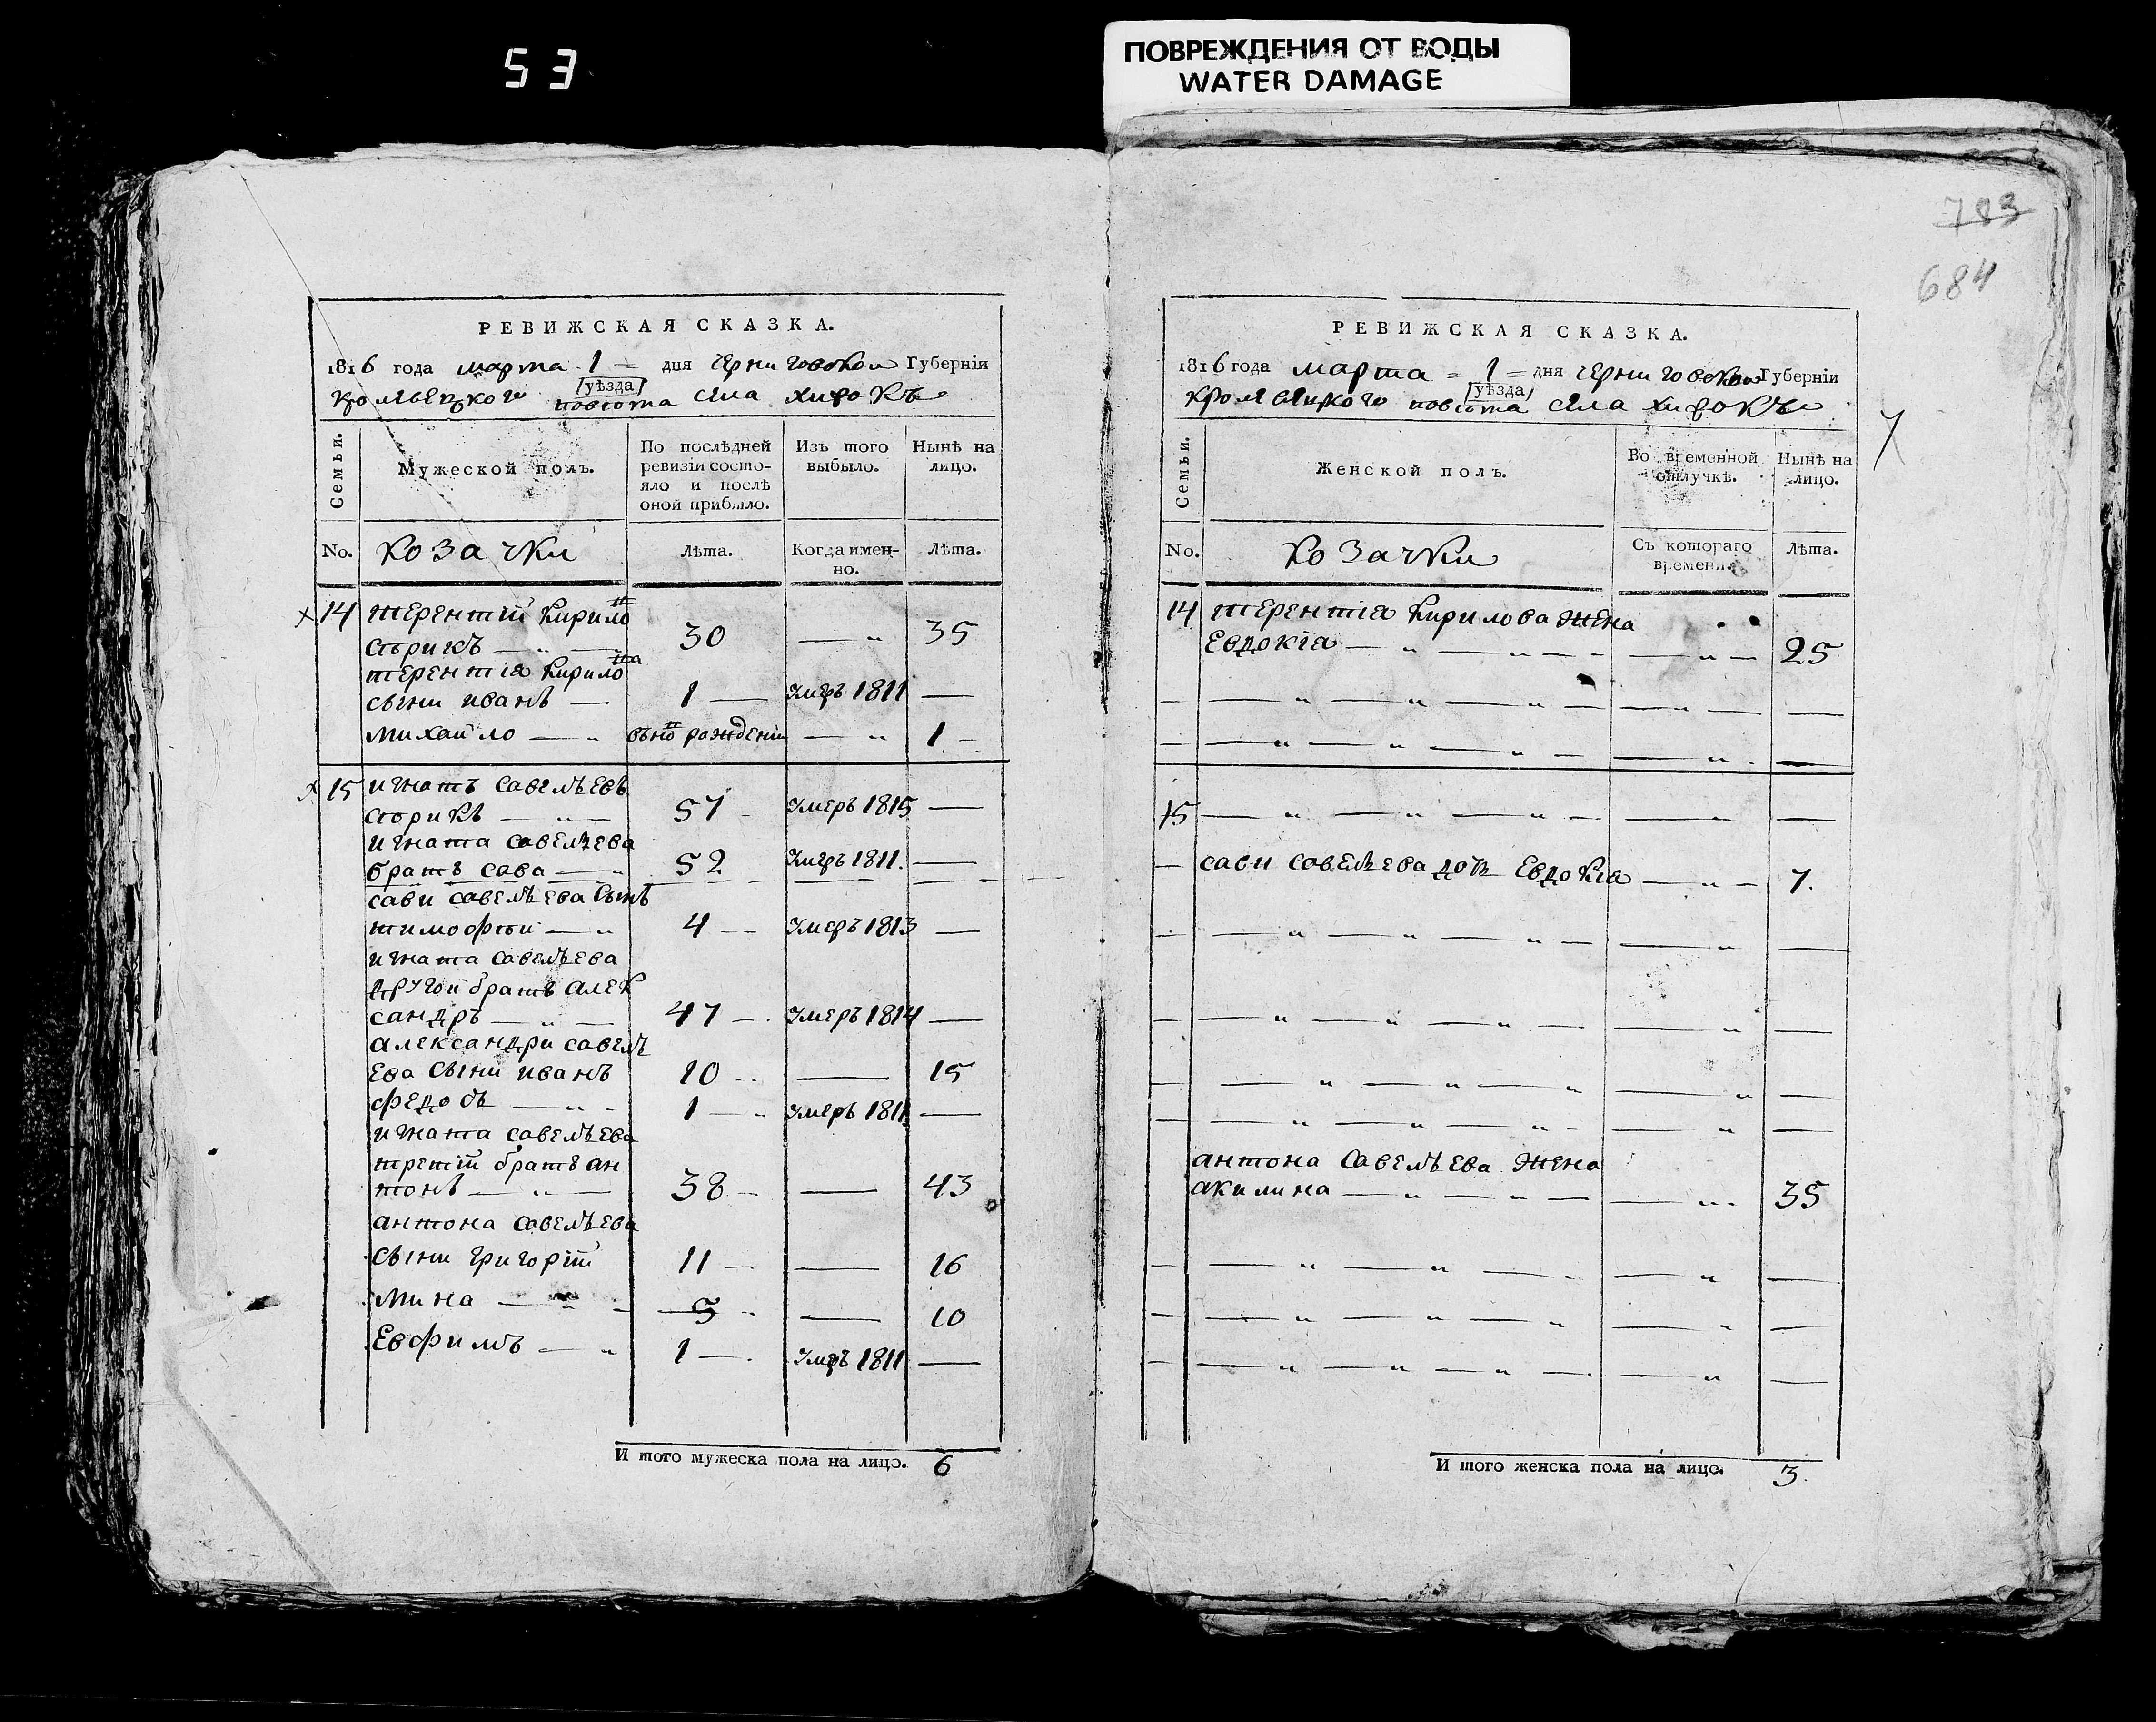 53
ПОВРЕЖДЕНИЯ ОТ ВОДЫ
WATER DAMAGE
783
684
РЕВИЖСКАЯ СКАЗКА.
1816 года марта 1 = дня черниговской Губерніи
кролевецкого повѣта уѣзда села
Семьи.
Мужеской полъ.
По послѣдней ревизіи состо-
яло и послѣ
оной прибыло.
Изъ того
выбыло.
Нынѣ на
лицо.
No. козачки
Лѣта.
Когда имен-
но.
Лѣта.
14 терентій кирило
30 — 35
терентіа кирило
сыни иванъ — 1 — умеръ 1811 —
михайло — рожденій — 1
15 игнатъ савелъевъ
57 умеръ 1815 —
игната савелъева
братъ сава — 52 умеръ 1811. —
сави савелъева сынъ
тимофѣй — 4 — умеръ 1813 —
игната савелъева
другой братъ алек
сандръ — 47 — умеръ 1814 —
александри савелъ
ева сыни иванъ 10 — 15
федоръ — 1 — умеръ 1811 —
игната савелъева
третій братъ ан
тонъ — 38 — 43
антона савелъева
сыни григорій 11 — 16
мина — 5 — 10
Евфимъ — 1 — умеръ 1811 —
И того мужеска пола на лицо. 6
РЕВИЖСКАЯ СКАЗКА.
1816 года марта = 1 = дня черниговской Губерніи
кролевецкого повѣта уѣзда села
Семьи.
Женской полъ.
Во временной
отлучкѣ.
Нынѣ на
лицо.
No. козачки
Съ котораго
времени.
Лѣта.
14 терентіа кирилова жена
Евдокіа — 25
15
сави савелъева дочь Евдокіа — 7.
антона савелъева жена
акилина — 35
И того женска пола на лицо. 3.